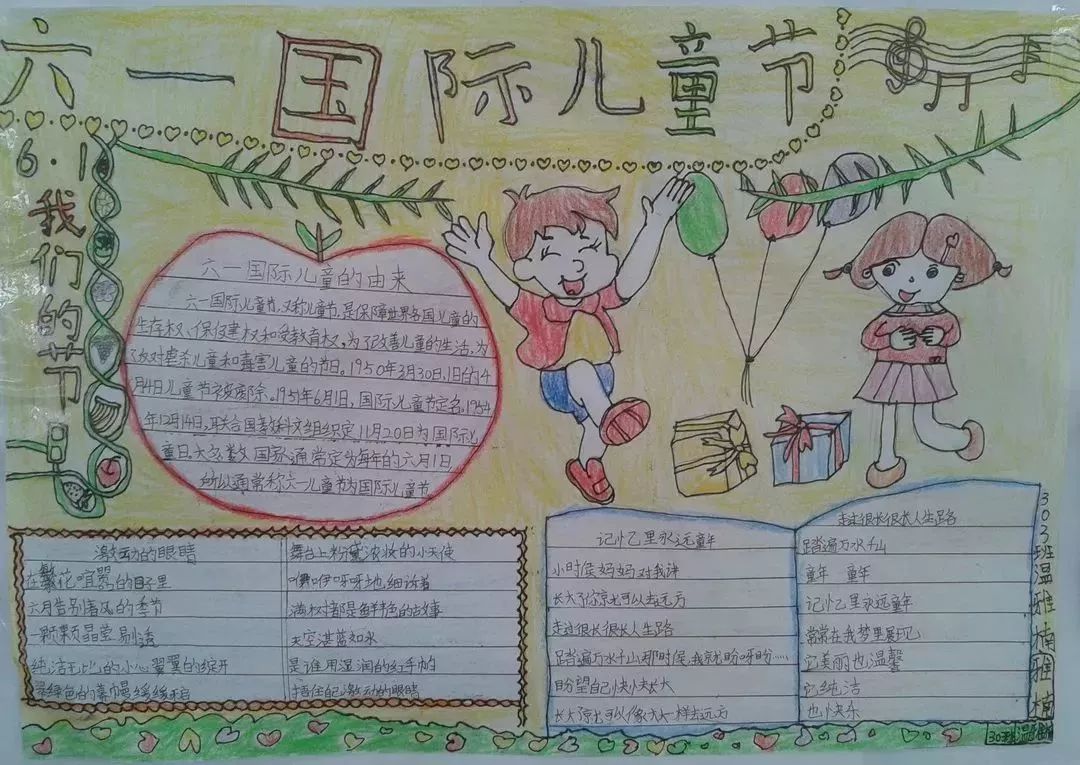 六一国际儿童节
6·1
我们的节
六一国际儿童的由来
六一国际儿童节,又称儿童节,是保障世界各国儿童的
生存权、保健权和受教育权,为了改善儿童的生活,为
了反对虐杀儿童和毒害儿童的节日。1950年3月30日,旧的4
月4日儿童节被废除。1951年6月1日,国际儿童节定名。1954
年12月14日,联合国教科文组织定11月20日为国际儿
童日大多数国家通常定为每年的六月1日
所以通常称六一儿童节为国际儿童节
激动的眼睛
在繁花喧嚣的日子里
六月告别春风的季节
一颗颗晶莹剔透
纯洁无比的小心翼翼的绽开
翠绿色的幕帷缓缓开启
舞台上粉黛浓妆的小天使
咿咿呀呀地细诉着
满树都是鲜艳色的故事
天空湛蓝如水
是谁用湿润的红手帕
捂住自己激动的眼睛
记忆里永远童年
小时侯妈妈对我讲
长大了你就可以去远方
走过很长很长人生路
踏遍万水千山那时侯,我就盼呀盼……
盼望自己快快长大
长大了就可以像大人一样去远方
走过很长很长人生路
踏遍万水千山
童年 童年
记忆里永远童年
常常在我梦里展现
它美丽也温馨
它纯洁
也快乐
303班温雅楠雅楠